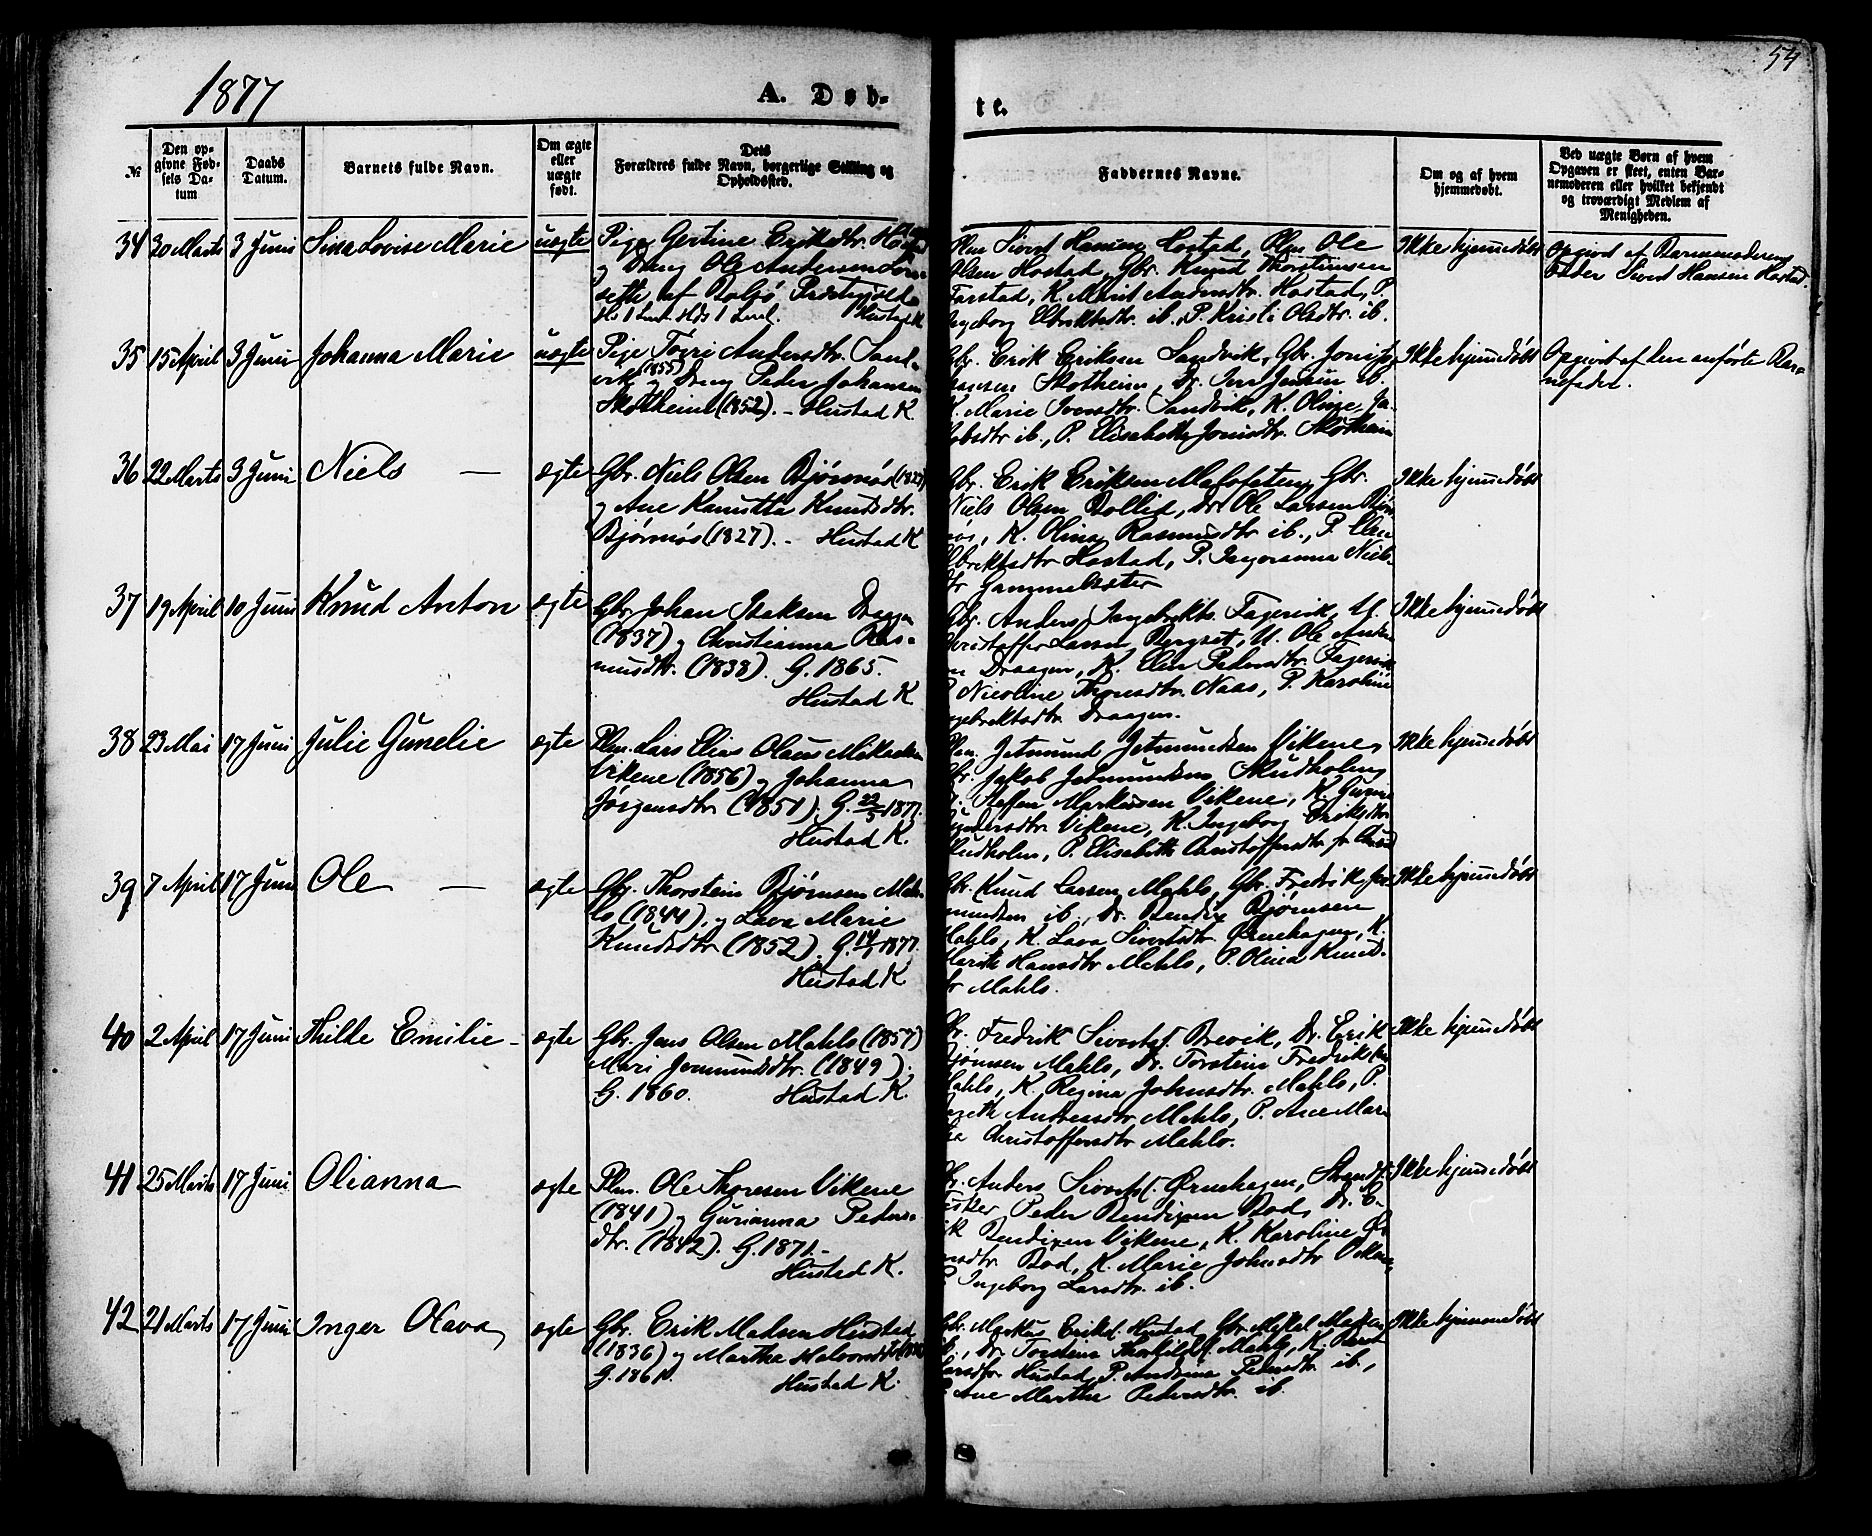 1877
A. Døb-
te.
54
№
Den op-
givne Fød-
sels Da-
tum
Daabs
Datum.
Barnets fulde Navn.
Om ægte
eller
uægte
født.
Dets
Forældres fulde Navn, borgerlige Stilling og
Opholdssted.
Faddernes Navne.
Om og af hvem
hjemmedøbt.
Ved uægte Børn af hvem
Opgaven er skeet, enten Bar-
nemoderen eller hvilket bekjendt
og troværdigt Medlem af
Menigheden.
34 30 Marts 3 Juni Sina Lovise Marie uægte
Pige Gertine Eriksdtr. Hostad
og Dreng Ole Andersen
af Bolsø Præstegjeld
Hustad K
Sivert Hansen Hostad, Plm Ole
Olsen Hostad, Gbr. Knud Thorstensen
Farstad, K. Marit Andersdtr. Hostad, P.
Ingeborg Ellingsdtr. ib., P. Kristi Olsdtr. ib.
Ikke hjemmedøbt
Opgivet af Barnemoderens
Fader Sivert Hansen Hostad.
35 15 April 3 Juni Johanna Marie uægte
Pige Andersdtr. Sand-
vik (1855) og Dreng Peder Johansen
Skotheim (1852). – Hustad K
Gbr. Erik Eriksen Sandvik, Gbr.
Skotheim, Dr. Iver Jensen ib.
K. Marie Iversdtr. Sandvik, K. Oline Ja-
kobsdtr ib., P. Elisabeth Jonsdtr. Skotheim
Ikke hjemmedøbt
Opgivet af den anførte Bar-
nefader.
36 22 Marts 3 Juni Niels — ægte
Gbr. Niels Olsen Bjørnøs
og Ane Knudsdtr.
Bjørnøs (1827). – Hustad K
Gbr. Erik Eriksen Gbr.
Niels Olsen Bollid, Dr. Ole Larsen Bjør-
nøs, K. Olina Rasmusdtr ib., P. Elen
Hostad, P. Niels-
dtr
Ikke hjemmedøbt
37 19 April 10 Juni Knud Anton ægte
Gbr. Johan Isaksen Draagen
(1837) og Christianna Ras-
musdtr. (1838). G. 1865.
Hustad K
Gbr. Anders Ingebrikts. Fagervik, U.
Christoffer Larsen Bergset, U. Ole
Draagen, K. Elen Pedersdtr. Fagervik
Nicoline Naas, P. Karoline
Ingebriktsdtr. Draagen.
Ikke hjemmedøbt
38 23 Mai 17 Juni Julie Gunelie ægte
Plm. Lars Elias Olaus Mikaelsen
Vikene (1856) og Johanna
Jørgensdtr (1851). G. 1877.
Hustad K.
Plm. Jetmund Jetmundsen Vikene,
Gbr. Jakob Jetmundsen Skudholm
Steffen Markussen Vikene, K.
Vikene, K. Ingeborg Eriksdtr
Skudholm, P. Elisabeth Christoffersdtr
Ikke hjemmedøbt
39 7 April 17 Juni Ole — ægte
Gbr. Thorstein Bjørnsen Mah-
ls (1844) og Lava Marie
Knudsdtr (1852). G. 1877.
Hustad K
Gbr. Knud Larsen Mahls, Gbr. Fredrik
ib., Dr. Bendix Bjørnsen
Mahls, K. Lava Sivertsdtr. Ørnehagen, K.
Marith Hansdtr Mahls, P. Olina Knuds-
dtr Mahls.
Ikke hjemmedøbt
40 2 April 17 Juni Thilde Emilie – ægte
Gbr. Jens Olsen Mahls (1857)
Mari Jormundsdtr. (1849).
G. 1860. Hustad K.
Fredrik Sivertsf. Brevik, Dr. Erik
Bjørnsen Mahls, Dr. Torstein Fredriksen
Mahls, K. Regina Johnsdtr. Mahls, P.
Andreasdtr Mahls, P. Ane Mar-
tha Christoffersdtr Mahls.
Ikke hjemmedøbt
41 25 Marts 17 Juni Olianna ægte
Plm. Ole Thoresen Vikene
(1841) og Gurianna Peders-
dtr. (1842). G. 1871. –
Hustad K.
Anders Sivertsf. Ørnehagen, Strandf.
Fisker Peder Bendixen Bod, Dr. E-
rik Bendixen Vikene, K. Karoline
Bod, K. Marie Johnsdtr Vikene,
Ingeborg Larsdtr. ib.
Ikke hjemmedøbt
42 21 Marts 17 Juni Inger Olava ægte
Gbr. Erik Madsen Hustad
(1836) og Martha Halvorsdtr
G. 1861. Hustad K.
Gbr. Markus Hustad, Gbr. Mikkel Madsen
ib., Dr. Torstein Mahls, K.
Larsdtr Hustad, P. Andrina Pedersdtr. ib.,
Ane Marthe Pedersdtr. ib.
Ikke hjemmedøbt